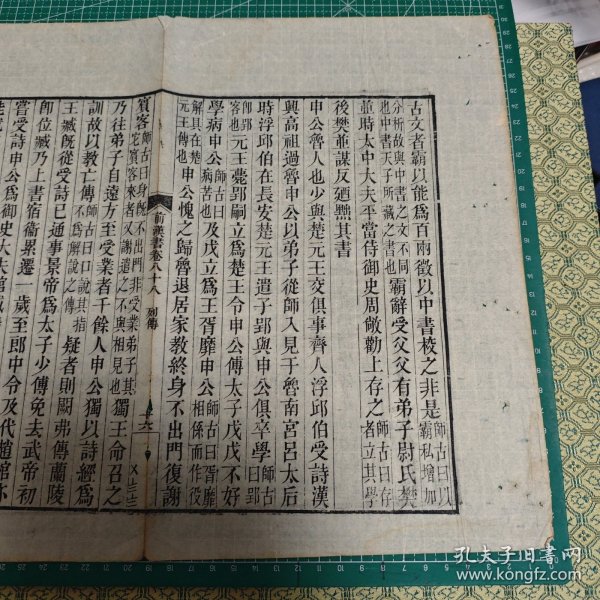 古文者霸以能爲百兩徵以中書校之非是師古曰以霸私增加
分析故與中書之文不同也中書天子所藏之書也霸辭受父父有弟子尉氏樊
並時太中大夫平當侍御史周敞勸上存之師古曰存者立其學
後樊並謀反廼黜其書
申公魯人也少與楚元王交俱事齊人浮邱伯受詩漢
興高祖過魯申公以弟子從師入見于魯南宮呂太后
時浮邱伯在長安楚元王遣子郢與申公俱卒學師古曰郢
卽郢客也元王薨郢嗣立爲楚王令申公傅太子戊戊不好
學病申公師古曰病苦也及戊立爲王胥靡申公師古曰胥靡相係而作役
解具在楚元王傳也申公愧之歸魯退居家教終身不出門復謝
前漢書卷八十八
列傳
六
賓客師古曰身旣不出門非受業弟子其它賓客來者又謝遣之不與相見也獨王命召之
乃往弟子自遠方至受業者千餘人申公獨以詩經爲
訓故以教亡傳師古曰口說其指不爲解說之傳疑者則闕弗傳蘭陵
王臧旣從受詩已通事景帝爲太子少傅免去武帝初
卽位臧乃上書宿衞累遷一歲至郎中令及代趙綰亦
嘗受詩申公爲御史大夫綰臧
孔夫子旧书网
www.kongfz.com